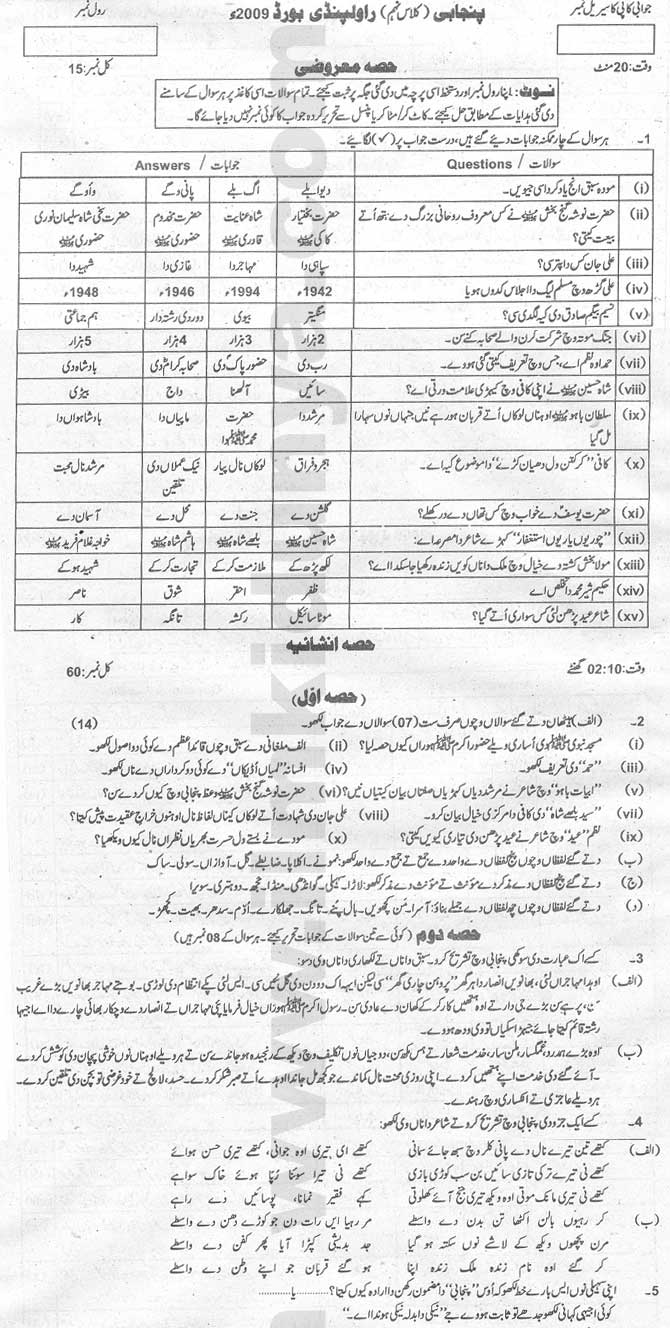 جوابی کاپی کا سیریل نمبر
پنجابی (کلاس نہم) راولپنڈی بورڈ 2009ء
رول نمبر
وقت: 20 منٹ
حصہ معروضی
کل نمبر: 15
نوٹ: اپنا رول نمبر اور دستخط اسی پرچہ میں دی گئی جگہ پر ثبت کیجئے۔ تمام سوالات اسی کاغذ پر ہر سوال کے سامنے
دی گئی ہدایات کے مطابق حل کیجئے۔ کاٹ کر/مٹا کر یا پنسل سے تحریر کردہ جواب کا کوئی نمبر نہیں دیا جائے گا۔
1۔ ہر سوال کے چار ممکنہ جوابات دیئے گئے ہیں، درست جواب پر (✓) لگائیے۔
سوالات / Questions جوابات / Answers
(i) مودہ سبق انج یاد کردا سی جیویں۔ دیوا بلے اگ بلے پانی وگے وا وگے
(ii) حضرت نوشہ گنج بخش نے کس معروف روحانی بزرگ دے ہتھ اُتے بیعت کیتی؟ حضرت بختیار کاکی شاہ عنایت قادری حضرت مخدوم حضوری حضرت سخی شاہ سلیمان نوری حضوری
(iii) علی جان کس دا پتر سی؟ سپاہی دا مہاجر دا غازی دا شہید دا
(iv) علی گڑھ وچ مسلم لیگ دا اجلاس کدوں ہویا 1942ء 1994ء 1946ء 1948ء
(v) نسیم بیگم صادق دی کیہ لگدی سی؟ منگیتر بیوی دور دی رشتہ دار ہم جماعتی
(vi) جنگ موتہ وچ شرکت کرن والے صحابہ کنے سن۔ 2 ہزار 3 ہزار 4 ہزار 5 ہزار
(vii) حمد اوہ نظم اے، جس وچ تعریف کیتی گئی ہووے۔ رب دی حضور پاک دی صحابہ کرام دی بادشاہ دی
(viii) شاہ حسین نے اپنی کافی وچ کیہڑی علامت ورتی اے؟ سائیں آلھنا داج بیڑی
(ix) سلطان باہو اوہناں لوکاں اُتے قربان ہو رہے نیں جنہاں نوں سہارا مل گیا مرشد دا حضرت محمد ﷺ دا ماپیاں دا بادشاہواں دا
(x) کافی "کرکتن ول دھیان کڑے" دا موضوع کیہ اے۔ ہجر و فراق لوکاں نال پیار نیک عملاں دی تلقین مرشد نال محبت
(xi) حضرت یوسف دے خواب وچ کس تھاں دے در کھلے؟ گلشن دے جنت دے محل دے آسمان دے
(xii) "چوریوں یاریوں استغفار" کیہڑے شاعر دا مصرعہ اے: شاہ حسین بلھے شاہ ہاشم شاہ خواجہ غلام فرید
(xiii) مولا بخش کشتہ دے خیال وچ ملک دا ناں کویں زندہ رکھیا جا سکدا اے؟ لکھ پڑھ کے ملازمت کر کے تجارت کر کے شہید ہو کے
(xiv) حکیم شیر محمد دا تخلص اے ظفر احقر شوق ناصر
(xv) شاعر عید پڑھن لئی کس سواری اُتے گیا؟ موٹر سائیکل رکشہ تانگہ کار
وقت: 02:10 گھنٹے
حصہ انشائیہ
کل نمبر: 60
(حصہ اوّل)
2۔ (الف) ہیٹھاں دتے گئے سوالاں وچوں صرف ست (07) سوالاں دے جواب لکھو۔ (14)
(i) مسجد نبویؐ دی اُساری ویلے حضور اکرم ﷺ ہوراں کیوں حصہ لیا؟ (ii) الف ملغانی دے سبق وچوں قائداعظم دے کوئی دو اصول لکھو۔
(iii) "حمد" دی تعریف لکھو۔ (iv) افسانہ "لمیاں اُڈیکاں" دے کوئی دو کرداراں دے ناں لکھو۔
(v) "ابیات باہو" وچ شاعر نے مرشد دیاں کیہڑیاں صفتاں بیان کیتیاں نیں؟ (vi) حضرت نوشہ گنج بخش وعظ پنجابی وچ کیوں کردے سن؟
(vii) "سید بلھے شاہ" دی کافی دا مرکزی خیال بیان کرو۔ (viii) علی جان دی شہادت اُتے لوکاں کیہناں لفظاں نال اوہنوں خراج عقیدت پیش کیتا؟
(ix) نظم "عید" وچ شاعر نے عید پڑھن دی تیاری کیویں کیتی؟ (x) مودے نے بستے ول حسرت بھریاں نظراں نال کیوں ویکھیا؟
(ب) دتے گئے لفظاں وچوں پنج لفظاں دے واحد دے جمع تے جمع دے واحد لکھو: نمونے۔ اکلاپا۔ ضابطے۔ گل۔ آوازاں۔ سولی۔ ساک
(ج) دتے گئے لفظاں وچوں پنج لفظاں دے مذکر دے مؤنث تے مؤنث دے مذکر لکھو: لاڑا۔ سہیلی۔ گوانڈھی۔ منڈا۔ مجھ۔ دوہتری۔ سویرا
(د) دتے گئے لفظاں وچوں چھ لفظاں دے جملے بناؤ: آسرا۔ مَن کھچویں۔ بال پنے۔ تانگ۔ جھلکارے۔ لُوم۔ سدھر۔ بھیت۔ کھچڑ۔
حصہ دوم (کوئی سے تین سوالات کے جوابات تحریر کیجئے۔ ہر سوال کے 08 نمبر ہیں)
3۔ کسے اک عبارت دی سوکھی پنجابی وچ تشریح کرو۔ سبق دا ناں تے لکھاری دا ناں وی دسو:
(الف) اوہدا مہاجراں لئی، بھانویں انصار دا ہر گھر "پروہن چاری گھر" سی لیکن ایہہ اک دو دن دی گل نئیں سی۔ ایس لئی پکے انتظام دی لوڑ سی۔ بوہتے مہاجر بھانویں بڑے غریب
سن، پر ہے سن بڑے جی دار تے اوہ ہتھیں کار کر کے کھان دے عادی سن۔ رسول اکرم ﷺ ہوراں خیال فرمایا پئی مہاجراں تے انصار دے وچکار بھائی چارے دا اے اجیہا
رشتہ قائم کیتا جائے جیہڑا سکیاں توں وی ودھ ہووے۔
(ب) اوہ بڑے ہمدرد، غمگسار، ملن سار، خدمت شعار تے ہس مکھ سن، دوجیاں نوں تکلیف وچ ویکھ کے رنجیدہ ہو جاندے سن تے ہر ویلے اوہناں نوں خوشی پہچان دی کوشش کردے
۔ آئے گئے دی خدمت اپنے ہتھیں کردے۔ اپنی روزی محنت نال کماندے جو کجھ مل جاندا اوہدے اُتے صبر شکر کردے۔ حسد، لالچ تے خود غرضی توں بچن دی تلقین کردے۔
ہر ویلے عاجزی تے انکساری وچ رہندے۔
4۔ کسے ایک جزو دی پنجابی وچ تشریح کرو تے شاعر دا ناں وی لکھو:
(الف) کتھے تین تیرے نال دے پانی کلر وچ سبھ جائے سمانی کتھے ای تیری اوہ جوانی، کتھے تیری حسن ہوائے
کتھے نی تیرے ترکی تازی سائیں بن سب کوڑی بازی کتھے نی تیرا سوئنا رُپا ہوئے خاک سواہے
کتھے نی تیری مانک موتی اوہ ویکھ تیری جنج آئے کھلوتی کہے فقیر نمانا، پوسائیں دے راہے
(ب) کر رہیوں بالن اکٹھا تن بدن دے واسطے مر رہیا ایں رات دن جو کوڑے دھن دے واسطے
مرن پچھوں ویکھ کے لاشے نوں سکتہ ہو گیا جد بدیشی کپڑا آیا پھر کفن دے واسطے
کر گئے اوہ نام زندہ ملک زندہ اپنا ہو گئے قربان جو اپنے وطن دے واسطے
5۔ اپنی سہیلی نوں ایس بارے خط لکھو کہ اُوس "پنجابی" دا مضمون رکھن دا ارادہ کیوں کیتا؟ ........ یا ........
کوئی اجیہی کہانی لکھو جدھے توں ثابت ہووے جے "نیکی دا بدلہ نیکی ہوندا اے۔"
www.ilmkidunya.com